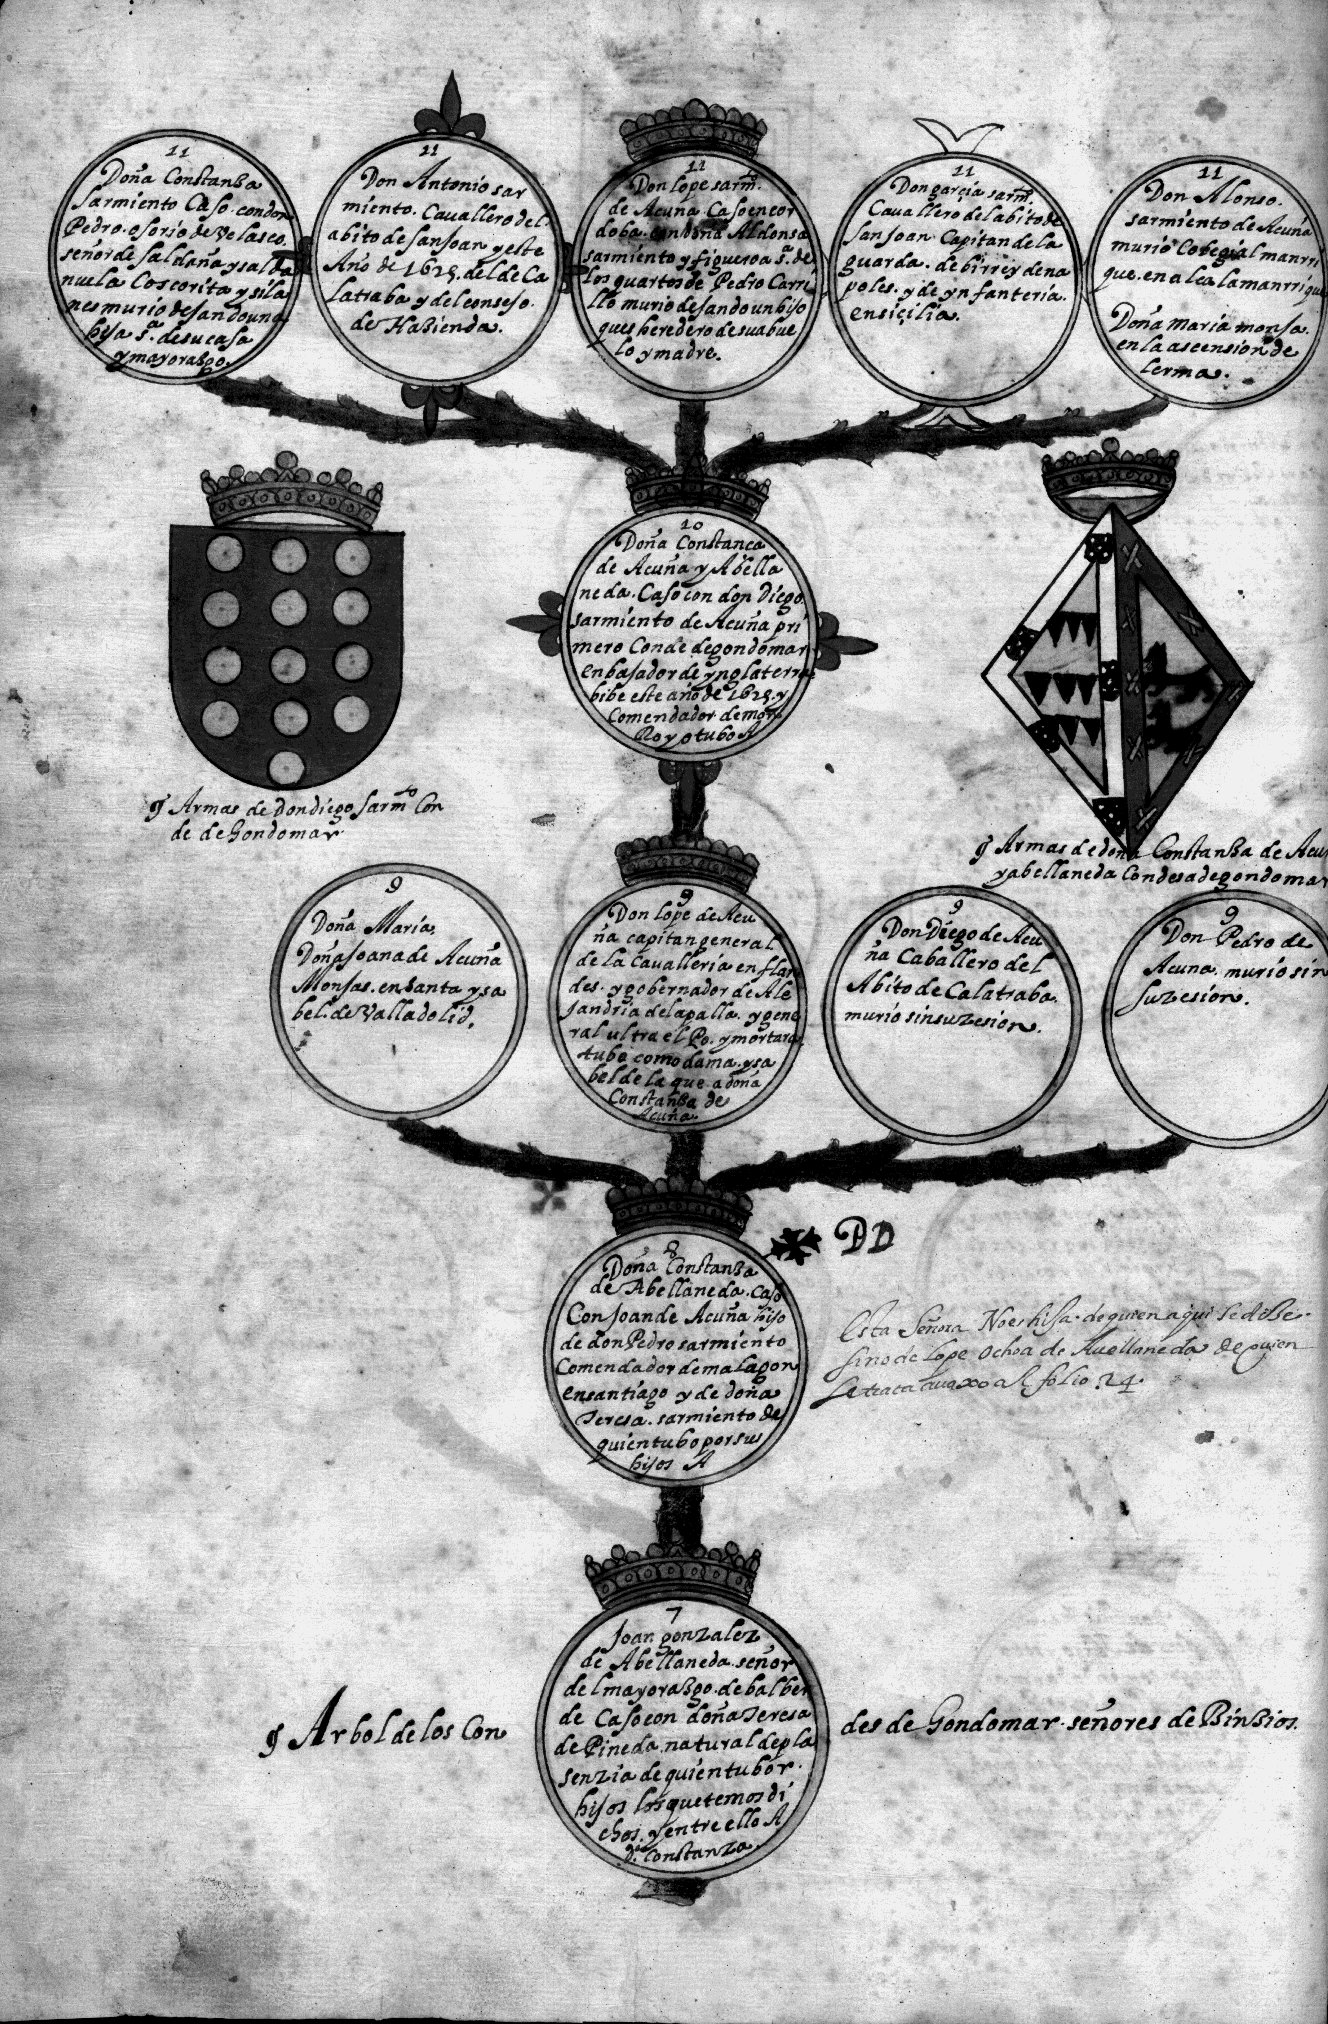 11
Doña Constanza
sarmiento Caso. con don
Pedro osorio de Velasco.
señor de saldaña y salda
nuela Coscorita y sila
nes murio dejando una
hija s.ª de su casa
y mayorazgo.
11
Don Antonio sar
miento. Cavallero del
abito de san Joan y este
Año de 1625. del de Ca
latraba y del consejo.
de Hazienda.
11
Don lope sarm.to
de Acuña Caso en cor
doba. con doña Aldonsa
sarmiento y figueroa s.ª de
los quartos de Pedro Carri
llo murio dejando un hijo
ques heredero de su abue
lo y madre.
11
Don garçia sarm.to
Cavallero del abito de
san Joan Capitan de la
guarda. de birrey de na
poles. y de ynfanteria.
en siçilia.
11
Don Alonso.
sarmiento de Acuña
murio Colegial manrri
que. en alcala manrrique
Doña maria monja.
en la ascension de
lerma.
10
Doña Constança
de Acuña y Abella
neda. Caso con don Diego
sarmiento de Acuña pri
mero Conde de gondomar
enbajador de ynglaterra
bibe este año de 1625. y
Comendador de mon
Roy o tubo A
ꝯ Armas de don diego sarm.to Con
de de Gondomar
ꝯ Armas de doña Constanza de Acu
y abellaneda Condesa de gondomar
9
Doña Maria,
Doña Joana de Acuña
Monjas. en santa ysa
bel. de Valladolid.
9
Don lope de Acu
ña capitan general
de la cavalleria en flan
des. y gobernador de Ale
jandria de la palla. y gene
ral ultra el Po. y mortara
tubo como dama. ysa
bel de la que a doña
Constanza de
Acuña.
9
Don Diego de Acu
ña Caballero del
Abito de Calatraba.
murio sin suzesion.
9
Don Pedro de
Acuna. murio sin
suzesion.
8
Doña Constanza
de Abellaneda. Caso
Con Joan de Acuña hijo
de don Pedro sarmiento
Comendador de malagon
en santiago y de doña
Teresa. sarmiento de
quien tubo por sus
hijos A
DD
Esta Señora No es hija. de quien aqui se dize.
sino de lope ochoa de Avellaneda de quien
se trata avaxo al folio 24.
7
Joan gonzalez
de Abellaneda. señor
del mayorazgo. de balber
de Caso con doña Teresa
de Pineda. natural de pla
senzia de quien tubo r.
hijos los que temos di
chos. y entre ello A
d.ª Constanza.
ꝯ Arbol de los Con
des de Gondomar. señores de Binbios.